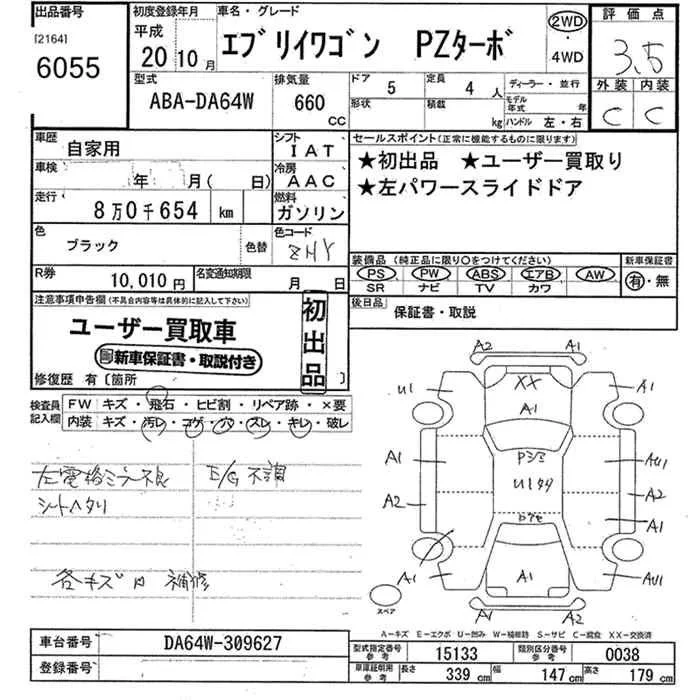 出品番号
[2164]
6055
初度登録年月
平成
20 10 月
車名・グレード
エブリイワゴン PZターボ
2WD
・
4WD
評価点
3.5
外装 内装
C C
型式
ABA-DA64W
排気量
660 CC
ドア 5
定員 4 人
ディーラー・並行
形状
積載 kg
モデル年式 年
ハンドル 左・右
車歴
自家用
シフト
IAT
車検
年 月( 日)
冷房
AAC
走行
8万0千654 km
燃料
ガソリン
色
ブラック
色替
色コード
ZHY
R券
10,010円
名変通知期限
月 日
セールスポイント(正常に機能するものに限ります)
★初出品 ★ユーザー買取り
★左パワースライドドア
装備品(純正品に限り○をつけてください)
PS PW ABS エアB AW
SR ナビ TV カワ
新車保証書
有・無
後日品
保証書・取説
注意事項申告欄(不具合内容等は具体的に記入して下さい)
ユーザー買取車
新車保証書・取説付き
初出品
修復歴 有〔箇所 〕
検査員記入欄
FW キズ・飛石・ヒビ割・リペア跡・×要
内装 キズ・汚レ・コゲ・穴・スレ・キレ・破レ
左電格ミラー不良 E/G不調
シートヘタリ
各キズ凹 補修
A2 A1
U1 XX A1
A1
A1 AU1
U1
A2 A2
A1
A1 A1 AU1
スペア
A1 A2
A－キズ E－エクボ U－凹み W－補修跡 S－サビ C－腐食 XX－交換済
車台番号
DA64W-309627
登録番号
型式指定番号 参考
15133
類別区分番号 参考
0038
車庫証明用 参考
長さ 339 cm
幅 147 cm
高さ 179 cm